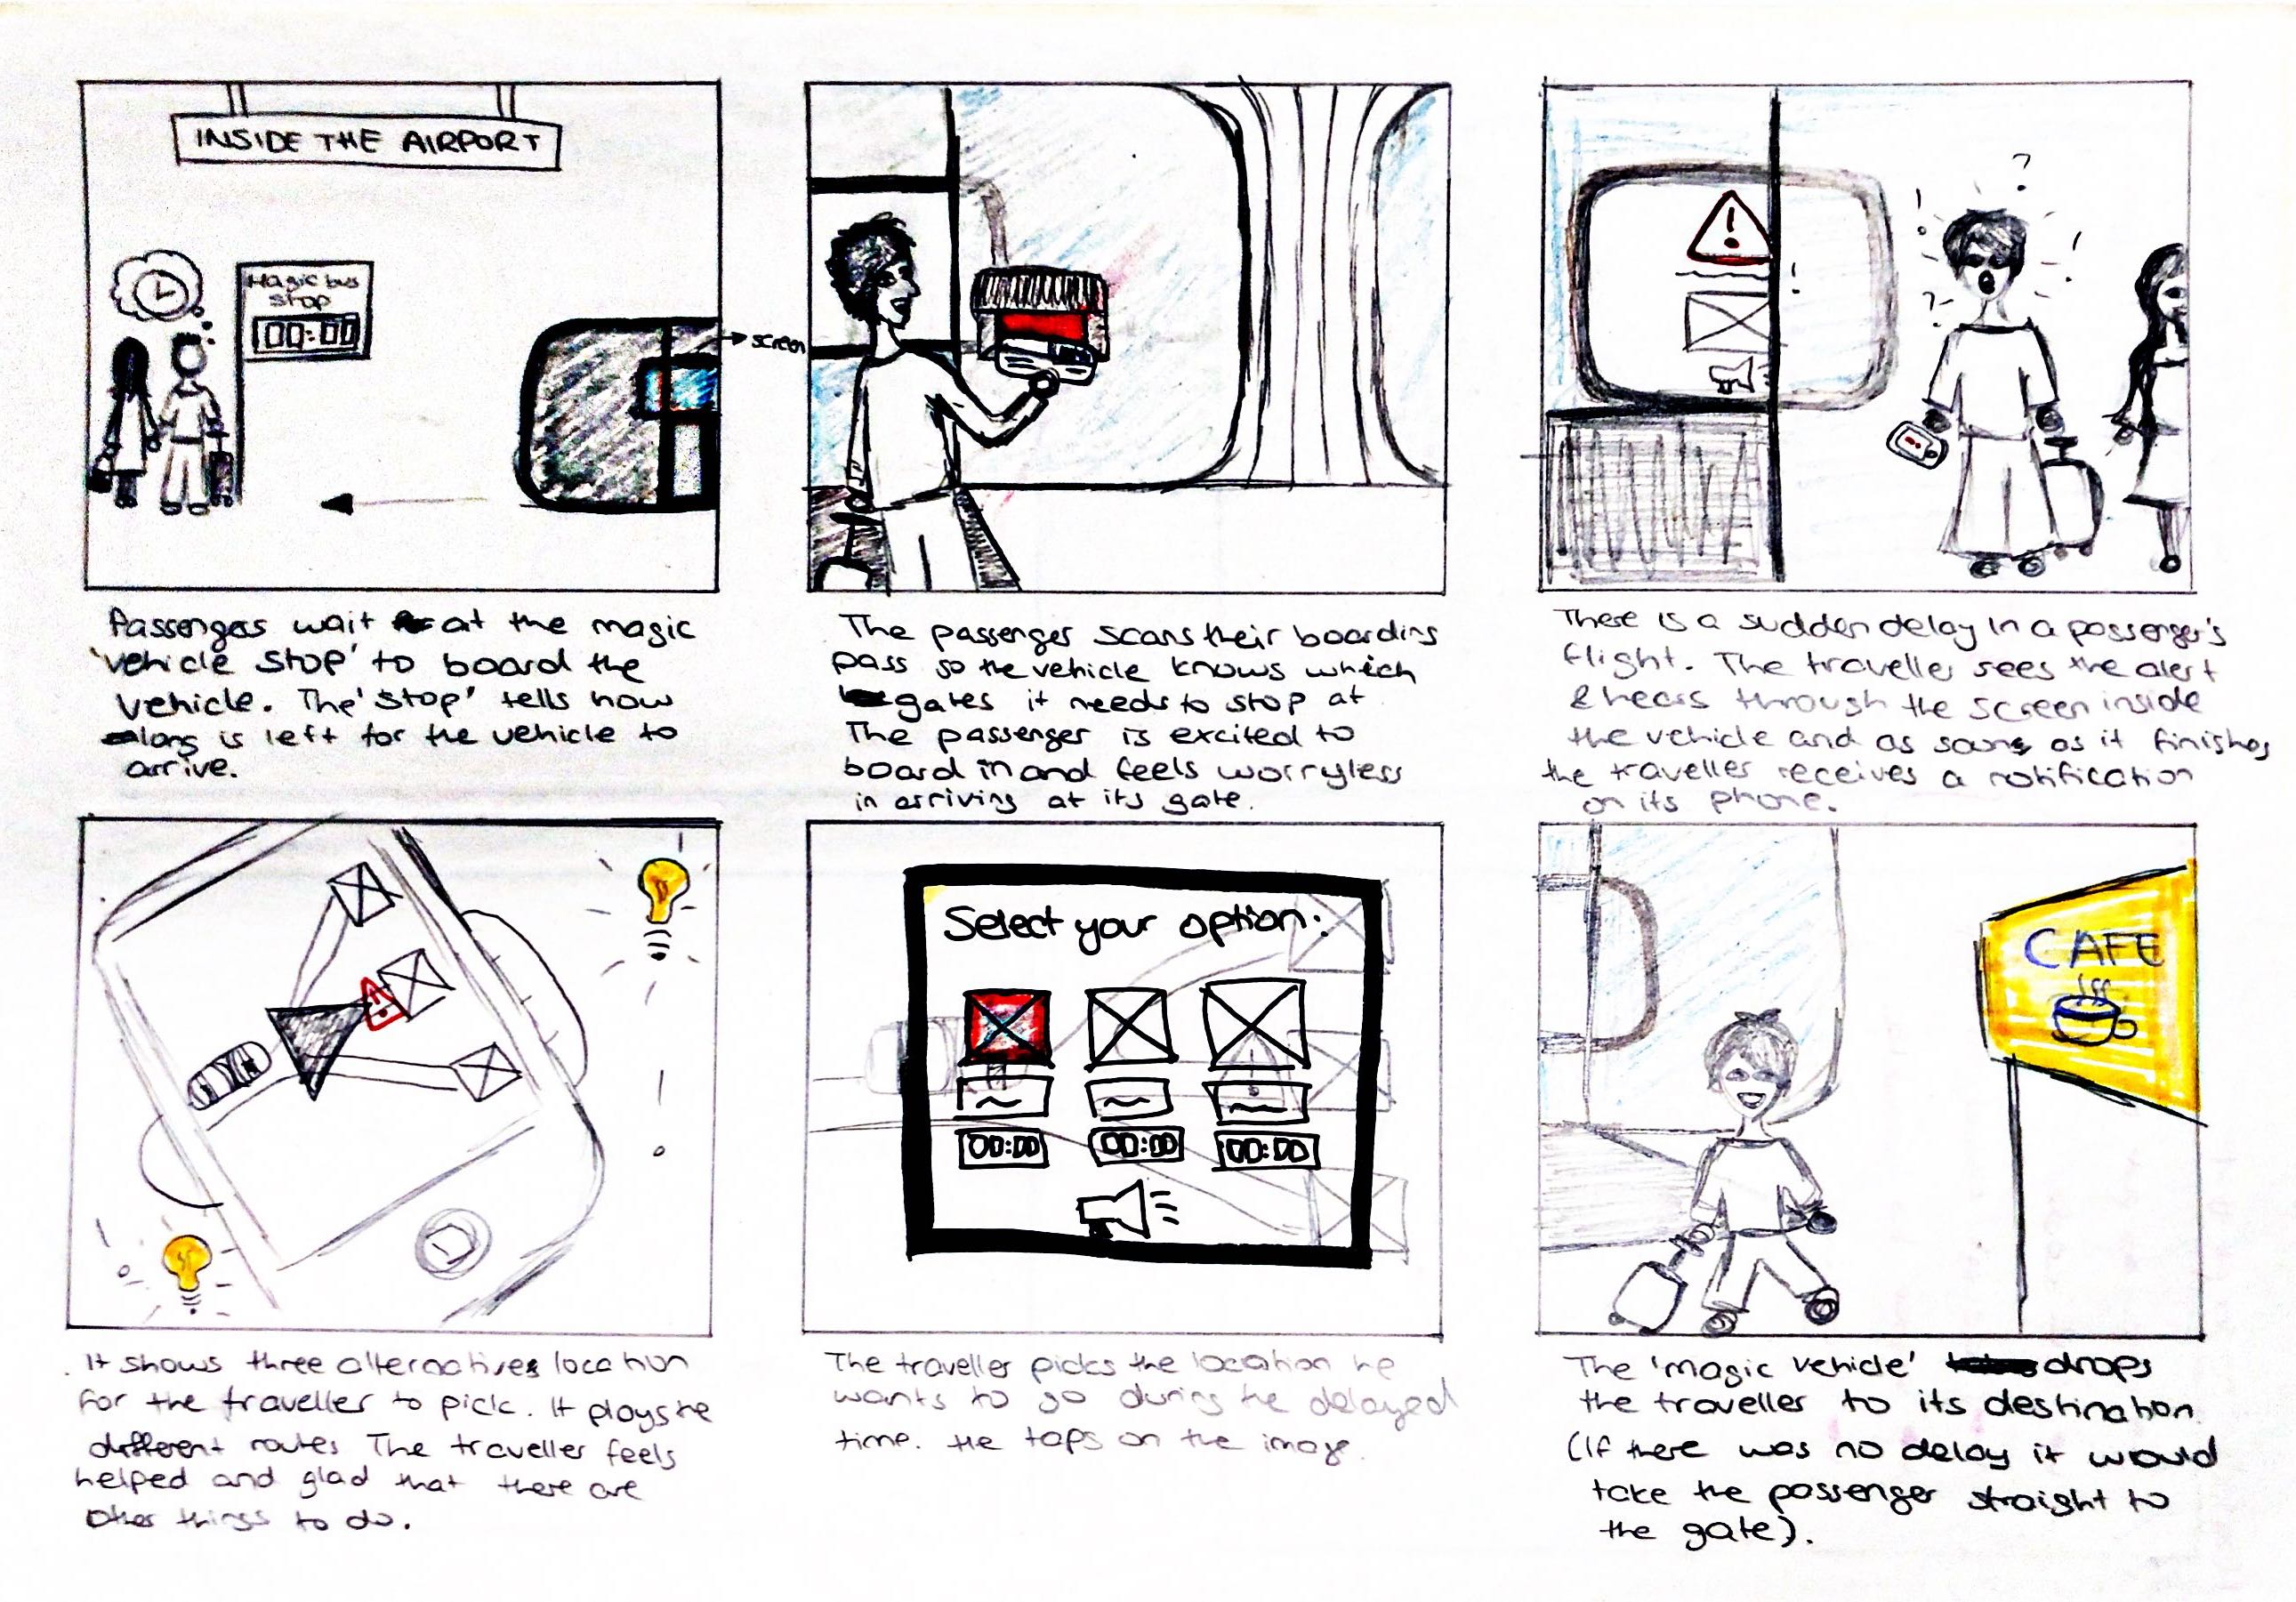 INSIDE THE AIRPORT
Magic bus
stop
00:00
screen
Passengers wait at the magic
'vehicle stop' to board the
vehicle. The 'stop' tells how
long is left for the vehicle to
arrive.
The passenger scans their boarding
pass so the vehicle knows which
gates it needs to stop at
The passenger is excited to
board in and feels worryless
in arriving at its gate.
There is a sudden delay in a passenger's
flight. The traveller sees the alert
& hears through the screen inside
the vehicle and as soon as it finishes
the traveller receives a notification
on its phone.
It shows three alternatives location
for the traveller to pick. It plays the
different routes The traveller feels
helped and glad that there are
other things to do.
Select your option:
00:00 00:00 00:00
The traveller picks the location he
wants to go during the delayed
time. He taps on the image.
CAFE
The 'magic vehicle' drops
the traveller to its destination.
(If there was no delay it would
take the passenger straight to
the gate).